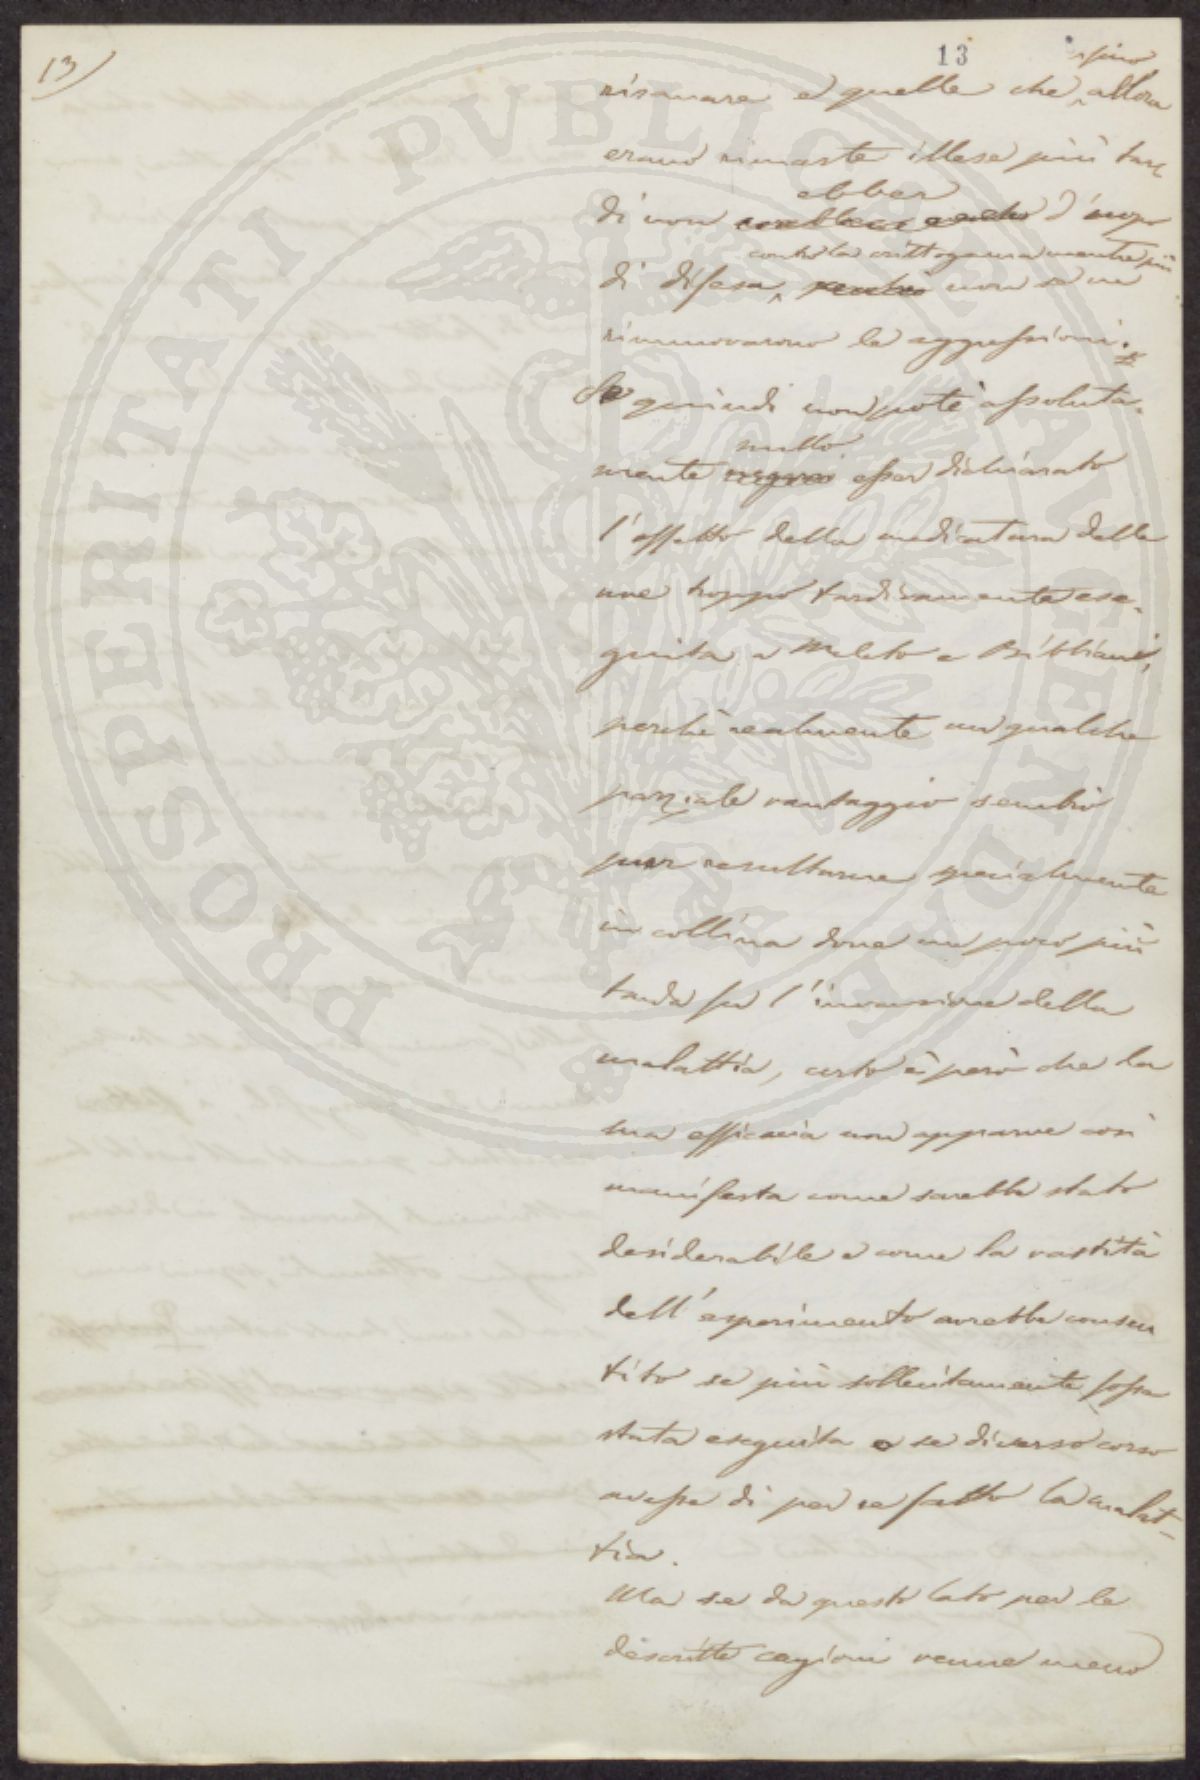 13)
13
risanare e quelle che sino allora
erano rimaste illese più tar
di non ebber d'uopo
di difesa contro la crittogama mentre più non se ne
rinnovarono le aggressioni.
Se quindi non potè assoluta-
mente nullo esser dichiarato
l'effetto della medicatura delle
uve troppo tardivamente ese-
guita a Meleto e Bibbiani,
perchè realmente un qualche
parziale vantaggio sembrò
pur resultarne specialmente
in collina dove un poco più
tarda fu l'invasione della
malattia, certo è però che la
sua efficacia non apparve così
manifesta come sarebbe stato
desiderabile e come la vastità
dell'esperimento avrebbe consen
tito se più sollecitamente fosse
stata eseguita o se diverso corso
avesse di per se fatto la malat-
tia.
Ma se da questo lato per le
descritte cagioni venne meno
PROSPERITATI PVBLICAE AVGENDAE